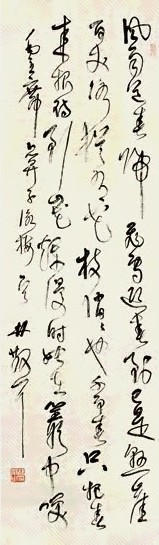 風雨送春歸飛雪迎春到已是懸崖
百丈冰猶有花枝俏〻也不爭春只把春
來報待到山花爛漫時她在叢中笑
毛主席卜算子詠梅 林散耳